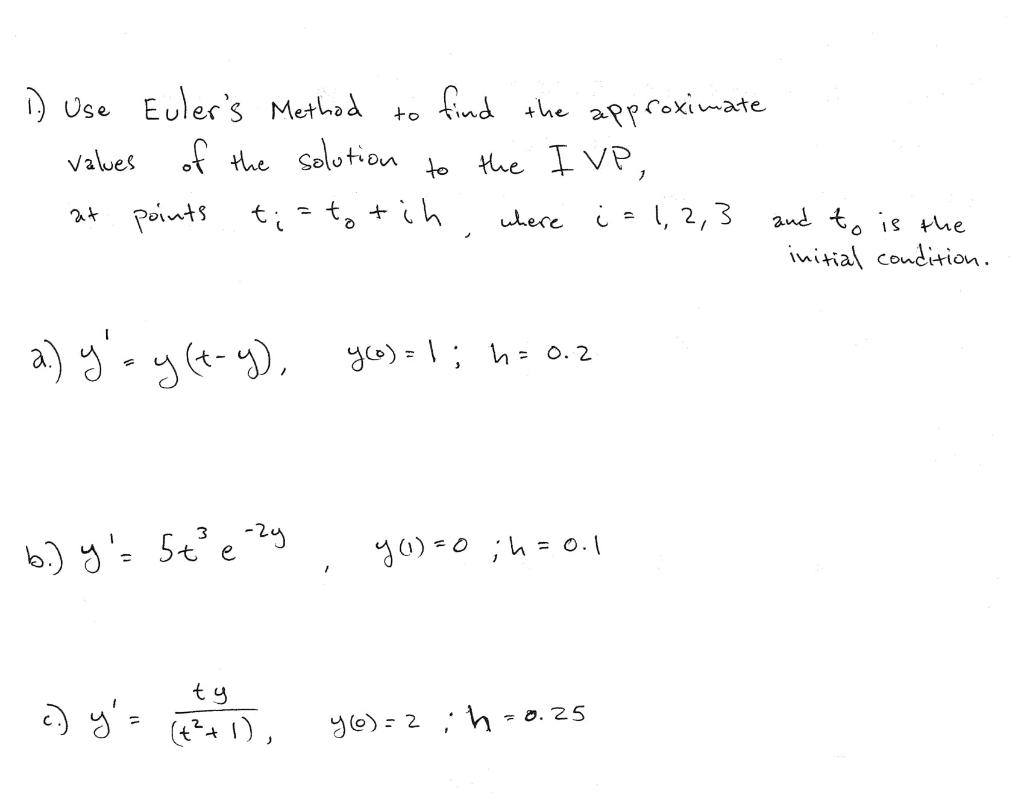 1.) Use Euler's Method to find the approximate
values of the solution to the IVP,
at points tᵢ = t₀ + ih, where i = 1, 2, 3 and t₀ is the
initial condition.
a.) y' = y(t-y), y(0) = 1; h = 0.2
b.) y' = 5t³e⁻²ʸ, y(1) = 0; h = 0.1
c.) y' = ty/(t²+1), y(0) = 2; h = 0.25